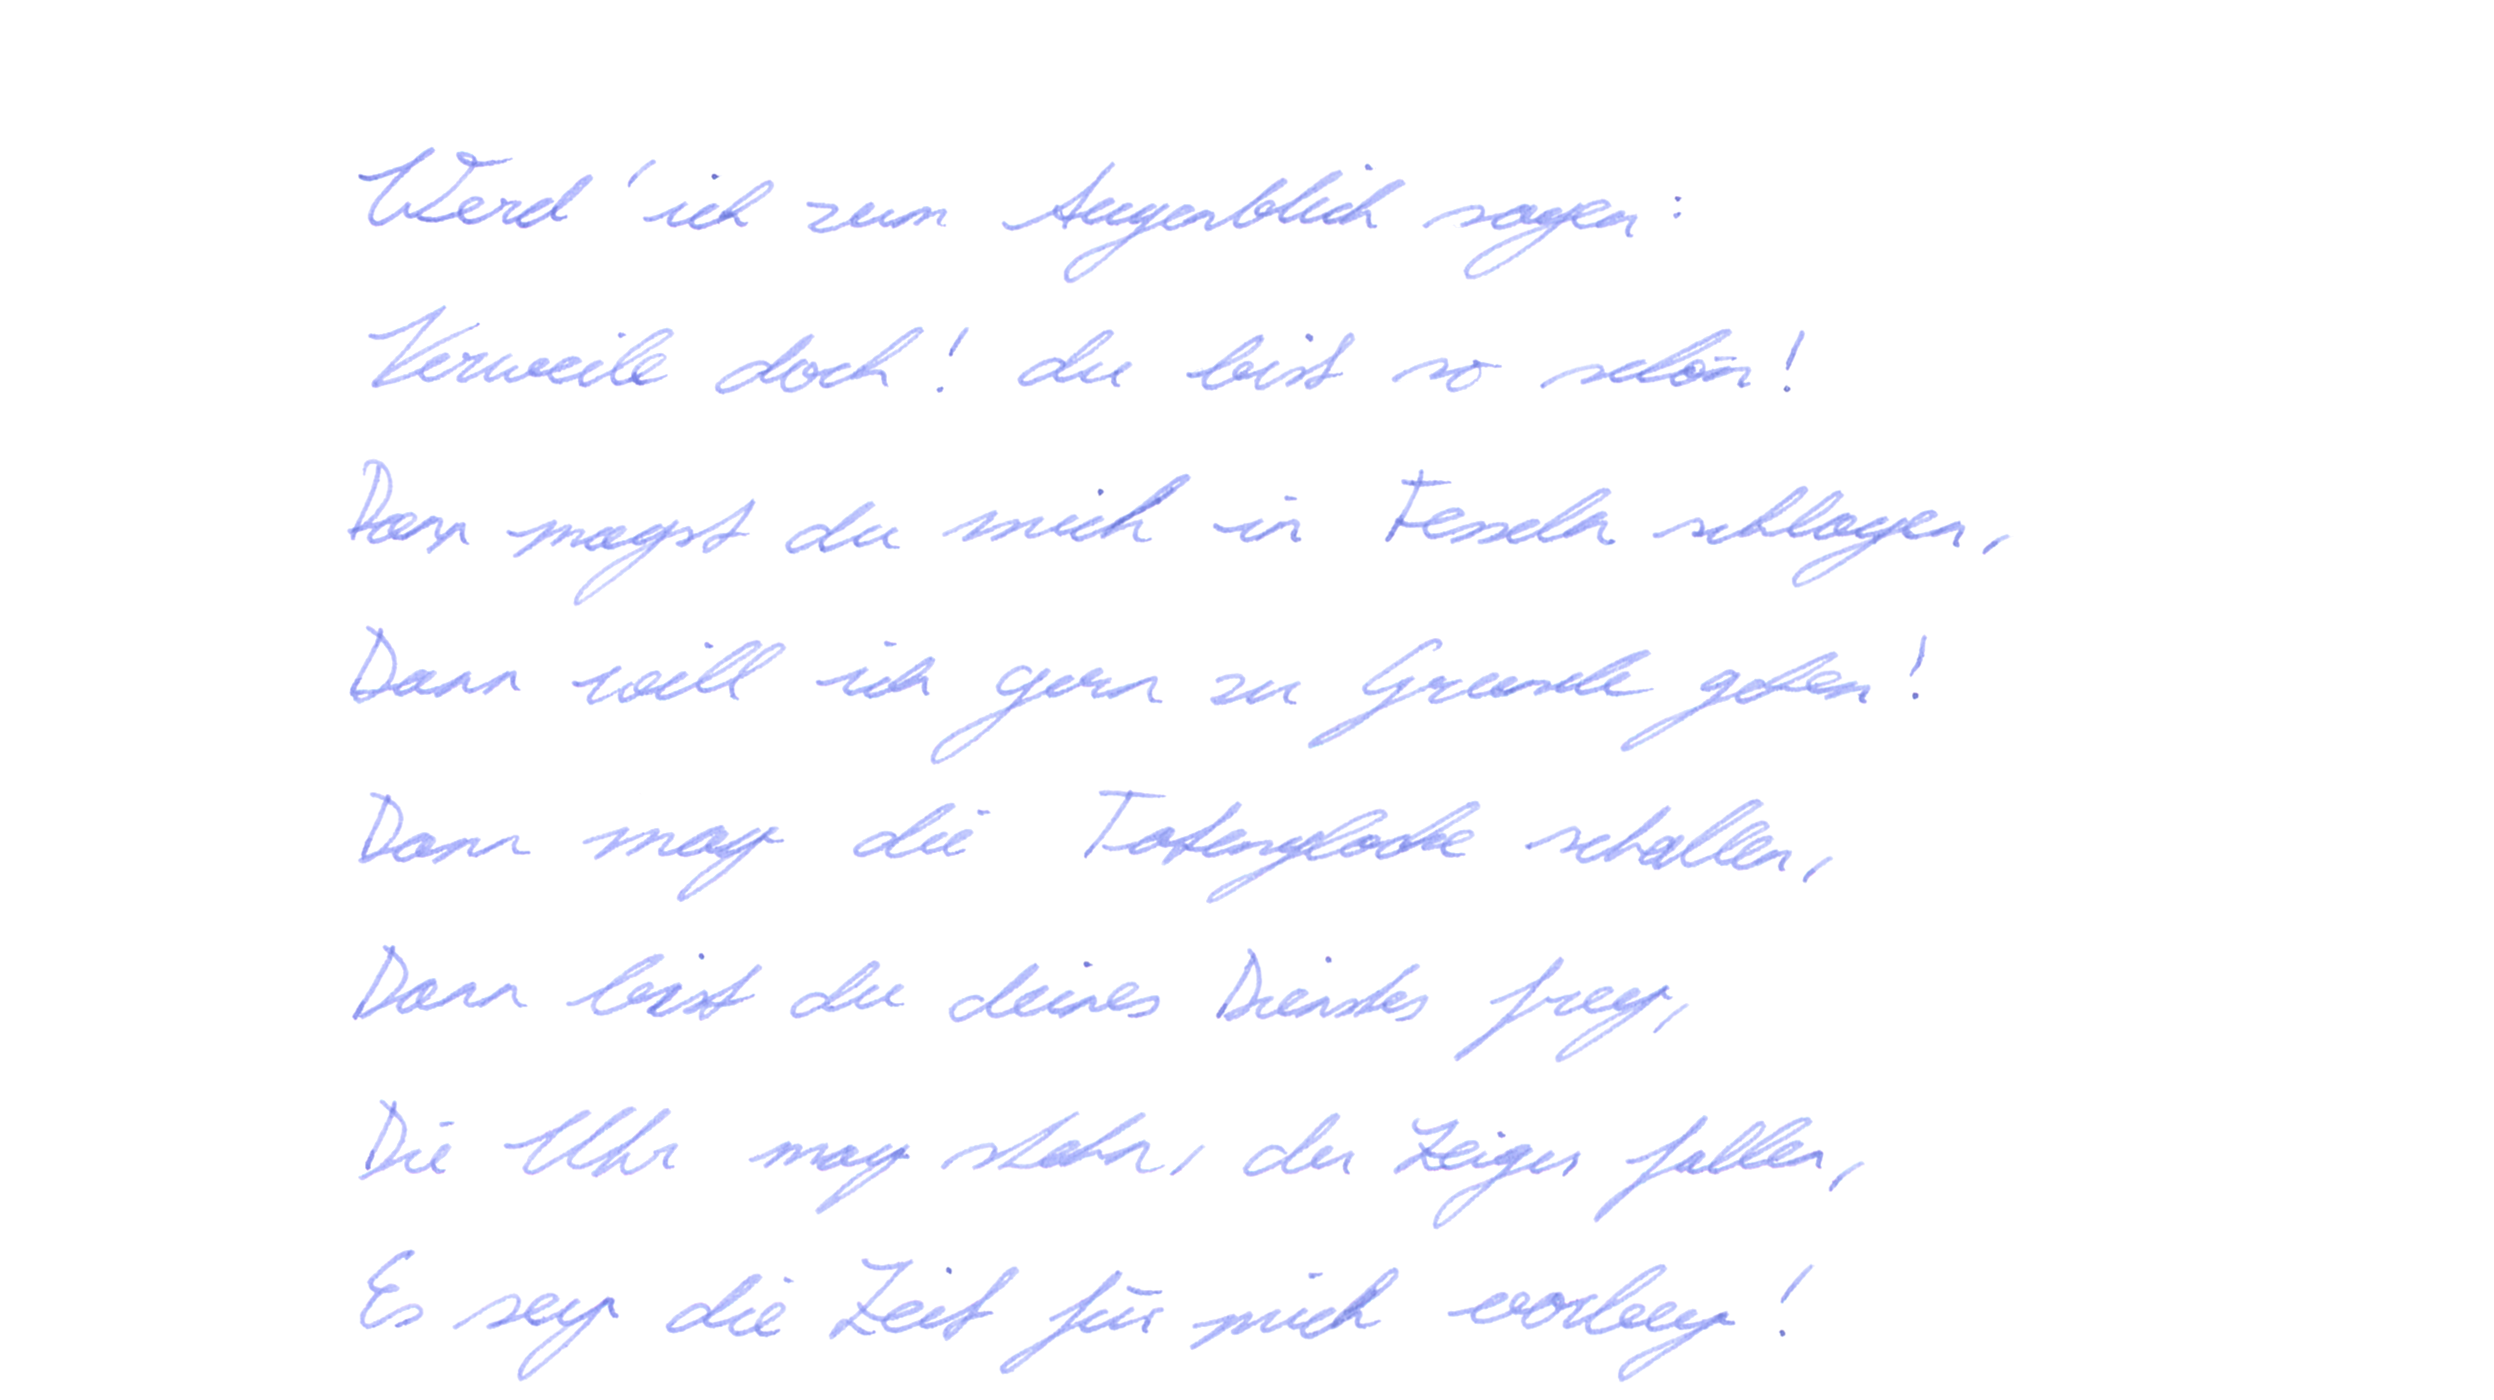 Werd' ich zum Augenblick sagen:
Verweile doch! du bist so schön!
Dann magst du mich in Fesseln schlagen,
Dann will ich gern zu Grunde gehen!
Dann mag die Totenglocke schallen,
Dann bist du deines Dienstes frey,
Die Uhr mag stehn, der Zeiger fallen,
Es sey die Zeit für mich vorbey!